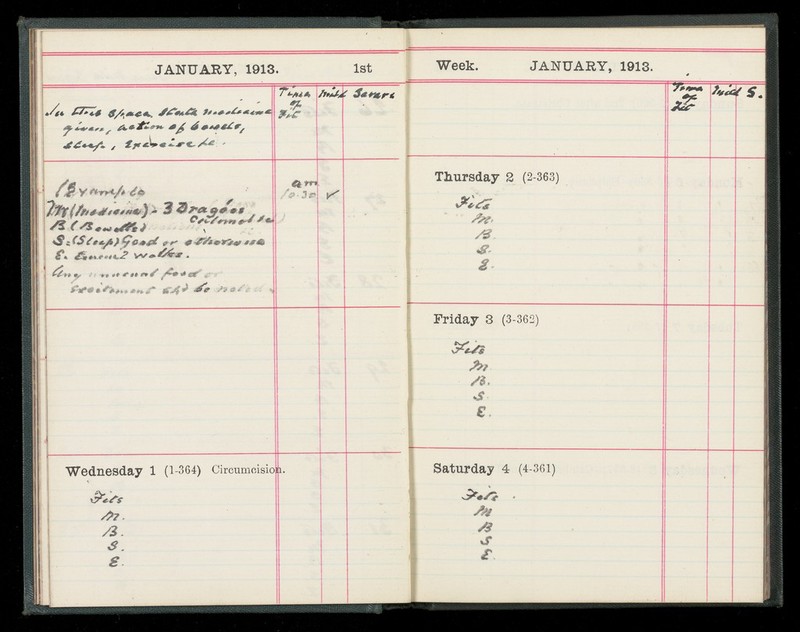 JANUARY, 1913. 1st
Time of Fit Mild Severe
In this space state medicine
given, action of bowels,
sleep, Exercise &c.
(Example am 10.30 ✓
M (Medicine) - 3 Dragées
B (Bowels)
S. (Sleep) Good or otherwise
E. walks.
Any unusual food or
excitement shd be noted.
Wednesday 1 (1-364) Circumcision.
Fits
M.
B.
S.
E.
Week. JANUARY, 1913.
Time of Fit Mild S.
Thursday 2 (2-363)
Fits
M.
B.
S.
E.
Friday 3 (3-362)
Fits
M.
B.
S.
E.
Saturday 4 (4-361)
Fits
M
B
S
E